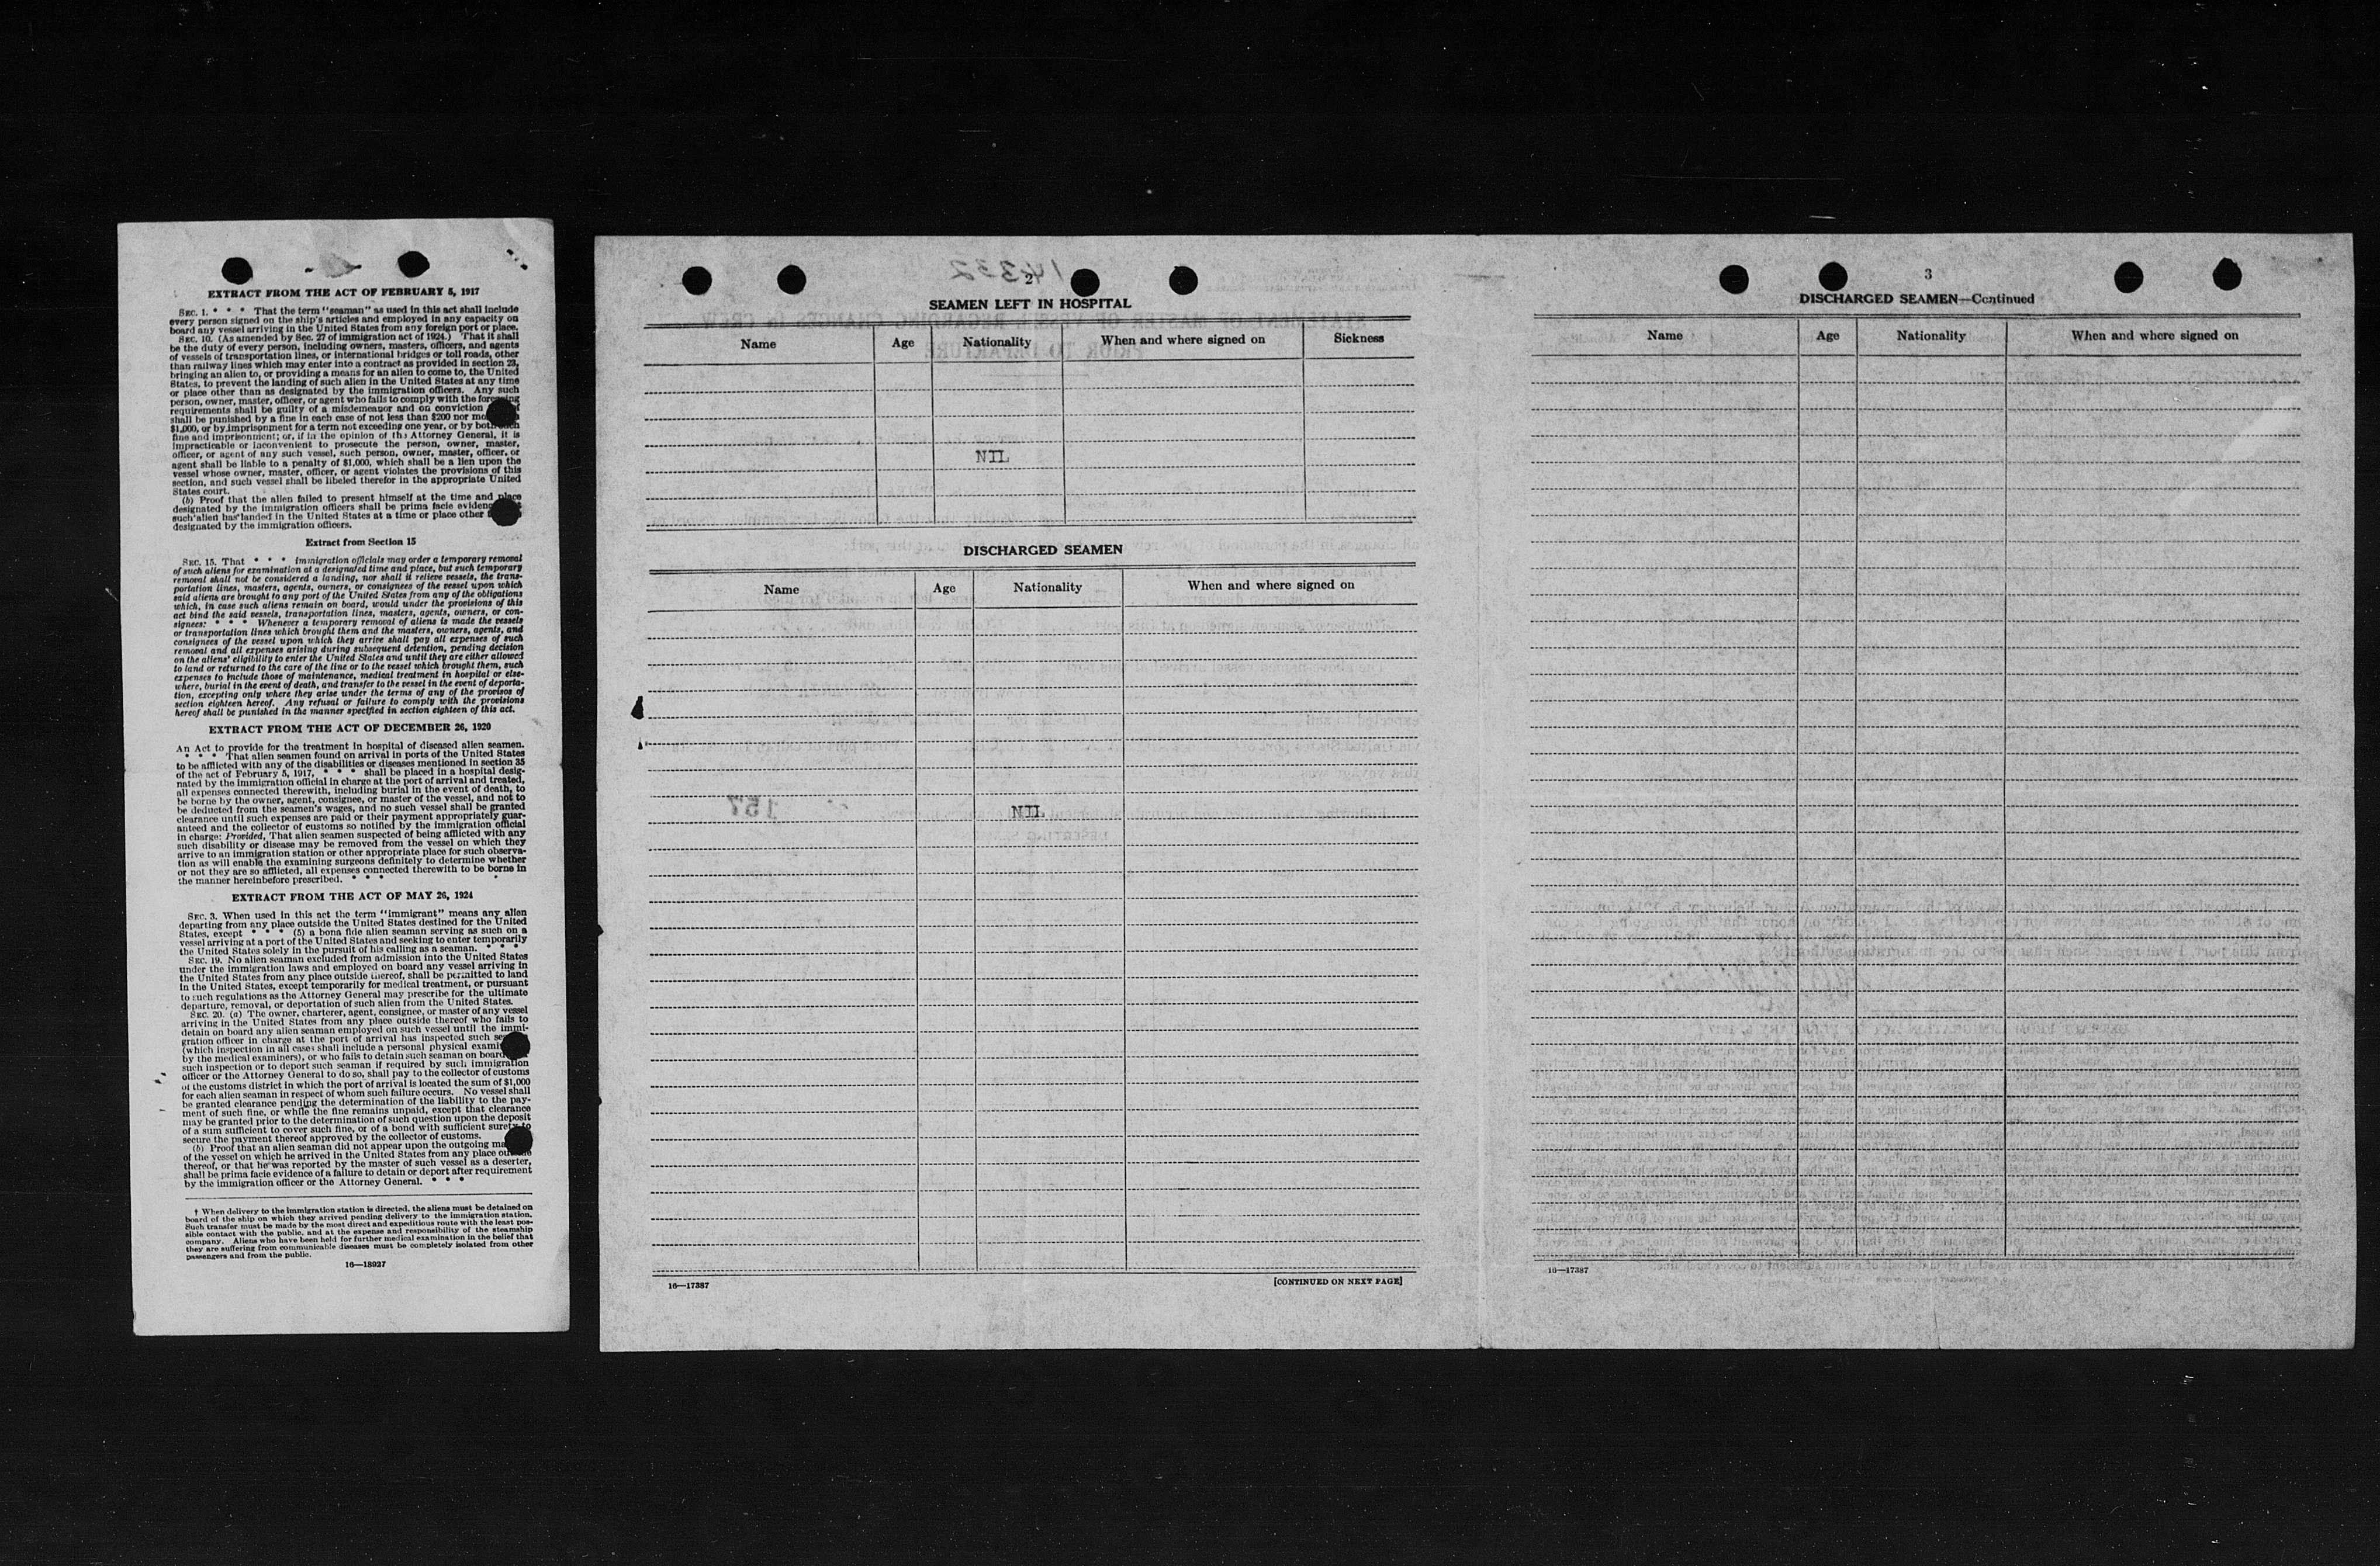 EXTRACT FROM THE ACT OF FEBRUARY 5, 1917
SEC. 1. * * * That the term "seaman" as used in this act shall include
every person signed on the ship's articles and employed in any capacity on
board any vessel arriving in the United States from any foreign port or place.
SEC. 10. (As amended by Sec. 27 of immigration act of 1924.) That it shall
be the duty of every person, including owners, masters, officers, and agents
of vessels of transportation lines, or international bridges or toll roads, other
than railway lines which may enter into a contract as provided in section 23,
bringing an alien to, or providing a means for an alien to come to, the United
States, to prevent the landing of such alien in the United States at any time
or place other than as designated by the immigration officers. Any such
person, owner, master, officer, or agent who fails to comply with the foregoing
requirements shall be guilty of a misdemeanor and on conviction
shall be punished by a fine in each case of not less than $200 nor
$1,000, or by imprisonment for a term not exceeding one year, or by both such
fine and imprisonment; or, if in the opinion of the Attorney General, it is
impracticable or inconvenient to prosecute the person, owner, master,
officer, or agent of any such vessel, such person, owner, master, officer, or
agent shall be liable to a penalty of $1,000, which shall be a lien upon the
vessel whose owner, master, officer, or agent violates the provisions of this
section, and such vessel shall be libeled therefor in the appropriate United
States court.
(b) Proof that the alien failed to present himself at the time and place
designated by the immigration officers shall be prima facie
such alien has landed in the United States at a time or place other
designated by the immigration officers.
Extract from Section 15
SEC. 15. That * * * immigration officials may order a temporary removal
of such aliens for examination at a designated time and place, but such temporary
removal shall not be considered a landing, nor shall it relieve vessels, the trans-
portation lines, masters, agents, owners, or consignees of the vessel upon which
said aliens are brought to any port of the United States from any of the obligations
which, in case such aliens remain on board, would under the provisions of this
act bind the said vessels, transportation lines, masters, agents, owners, or con-
signees: * * * Whenever a temporary removal of aliens is made the vessels
or transportation lines which brought them and the masters, owners, agents, and
consignees of the vessel upon which they arrive shall pay all expenses of such
removal and all expenses arising during subsequent detention, pending decision
on the aliens' eligibility to enter the United States and until they are either allowed
to land or returned to the care of the line or to the vessel which brought them, such
expenses to include those of maintenance, medical treatment in hospital or else-
where, burial in the event of death, and transfer to the vessel in the event of deporta-
tion, excepting only where they arise under the terms of any of the provisos of
section eighteen hereof. Any refusal or failure to comply with the provisions
hereof shall be punished in the manner specified in section eighteen of this act.
EXTRACT FROM THE ACT OF DECEMBER 26, 1920
An Act to provide for the treatment in hospital of diseased alien seamen.
* * * That alien seamen found on arrival in ports of the United States
to be afflicted with any of the disabilities or diseases mentioned in section 35
of the act of February 5, 1917, * * * shall be placed in a hospital desig-
nated by the immigration official in charge at the port of arrival and treated,
all expenses connected therewith, including burial in the event of death, to
be borne by the owner, agent, consignee, or master of the vessel, and not to
be deducted from the seamen's wages, and no such vessel shall be granted
clearance until such expenses are paid or their payment appropriately guar-
anteed and the collector of customs so notified by the immigration official
in charge: Provided, That alien seamen suspected of being afflicted with any
such disability or disease may be removed from the vessel on which they
arrive to an immigration station or other appropriate place for such observa-
tion as will enable the examining surgeons definitely to determine whether
or not they are so afflicted, all expenses connected therewith to be borne in
the manner hereinbefore prescribed. * * *
EXTRACT FROM THE ACT OF MAY 26, 1924
SEC. 3. When used in this act the term "immigrant" means any alien
departing from any place outside the United States destined for the United
States, except * * * (5) a bona fide alien seaman serving as such on a
vessel arriving at a port of the United States and seeking to enter temporarily
the United States solely in the pursuit of his calling as a seaman. * * *
SEC. 19. No alien seaman excluded from admission into the United States
under the immigration laws and employed on board any vessel arriving in
the United States from any place outside thereof, shall be permitted to land
in the United States, except temporarily for medical treatment, or pursuant
to such regulations as the Attorney General may prescribe for the ultimate
departure, removal, or deportation of such alien from the United States.
SEC. 20. (a) The owner, charterer, agent, consignee, or master of any vessel
arriving in the United States from any place outside thereof who fails to
detain on board any alien seaman employed on such vessel until the immi-
gration officer in charge at the port of arrival has inspected such
(which inspection in all cases shall include a personal physical
by the medical examiners), or who fails to detain such seaman on board
such inspection or to deport such seaman if required by such immigration
officer or the Attorney General to do so, shall pay to the collector of customs
of the customs district in which the port of arrival is located the sum of $1,000
for each alien seaman in respect of whom such failure occurs. No vessel shall
be granted clearance pending the determination of the liability to the pay-
ment of such fine, or while the fine remains unpaid, except that clearance
may be granted prior to the determination of such question upon the deposit
of a sum sufficient to cover such fine, or of a bond with sufficient surety to
secure the payment thereof approved by the collector of customs.
(b) Proof that an alien seaman did not appear upon the outgoing
of the vessel on which he arrived in the United States from any place
thereof, or that he was reported by the master of such vessel as a deserter,
shall be prima facie evidence of a failure to detain or deport after requirement
by the immigration officer or the Attorney General. * * *
† When delivery to the immigration station is directed, the aliens must be detained on
board of the ship on which they arrived pending delivery to the immigration station.
Such transfer must be made by the most direct and expeditious route with the least pos-
sible contact with the public, and at the expense and responsibility of the steamship
company. Aliens who have been held for further medical examination in the belief that
they are suffering from communicable diseases must be completely isolated from other
passengers and from the public.
16—18927
2
SEAMEN LEFT IN HOSPITAL
Name Age Nationality When and where signed on Sickness
NIL
DISCHARGED SEAMEN
Name Age Nationality When and where signed on
NIL
16—17387 [CONTINUED ON NEXT PAGE]
3
DISCHARGED SEAMEN—Continued
Name Age Nationality When and where signed on
16—17387